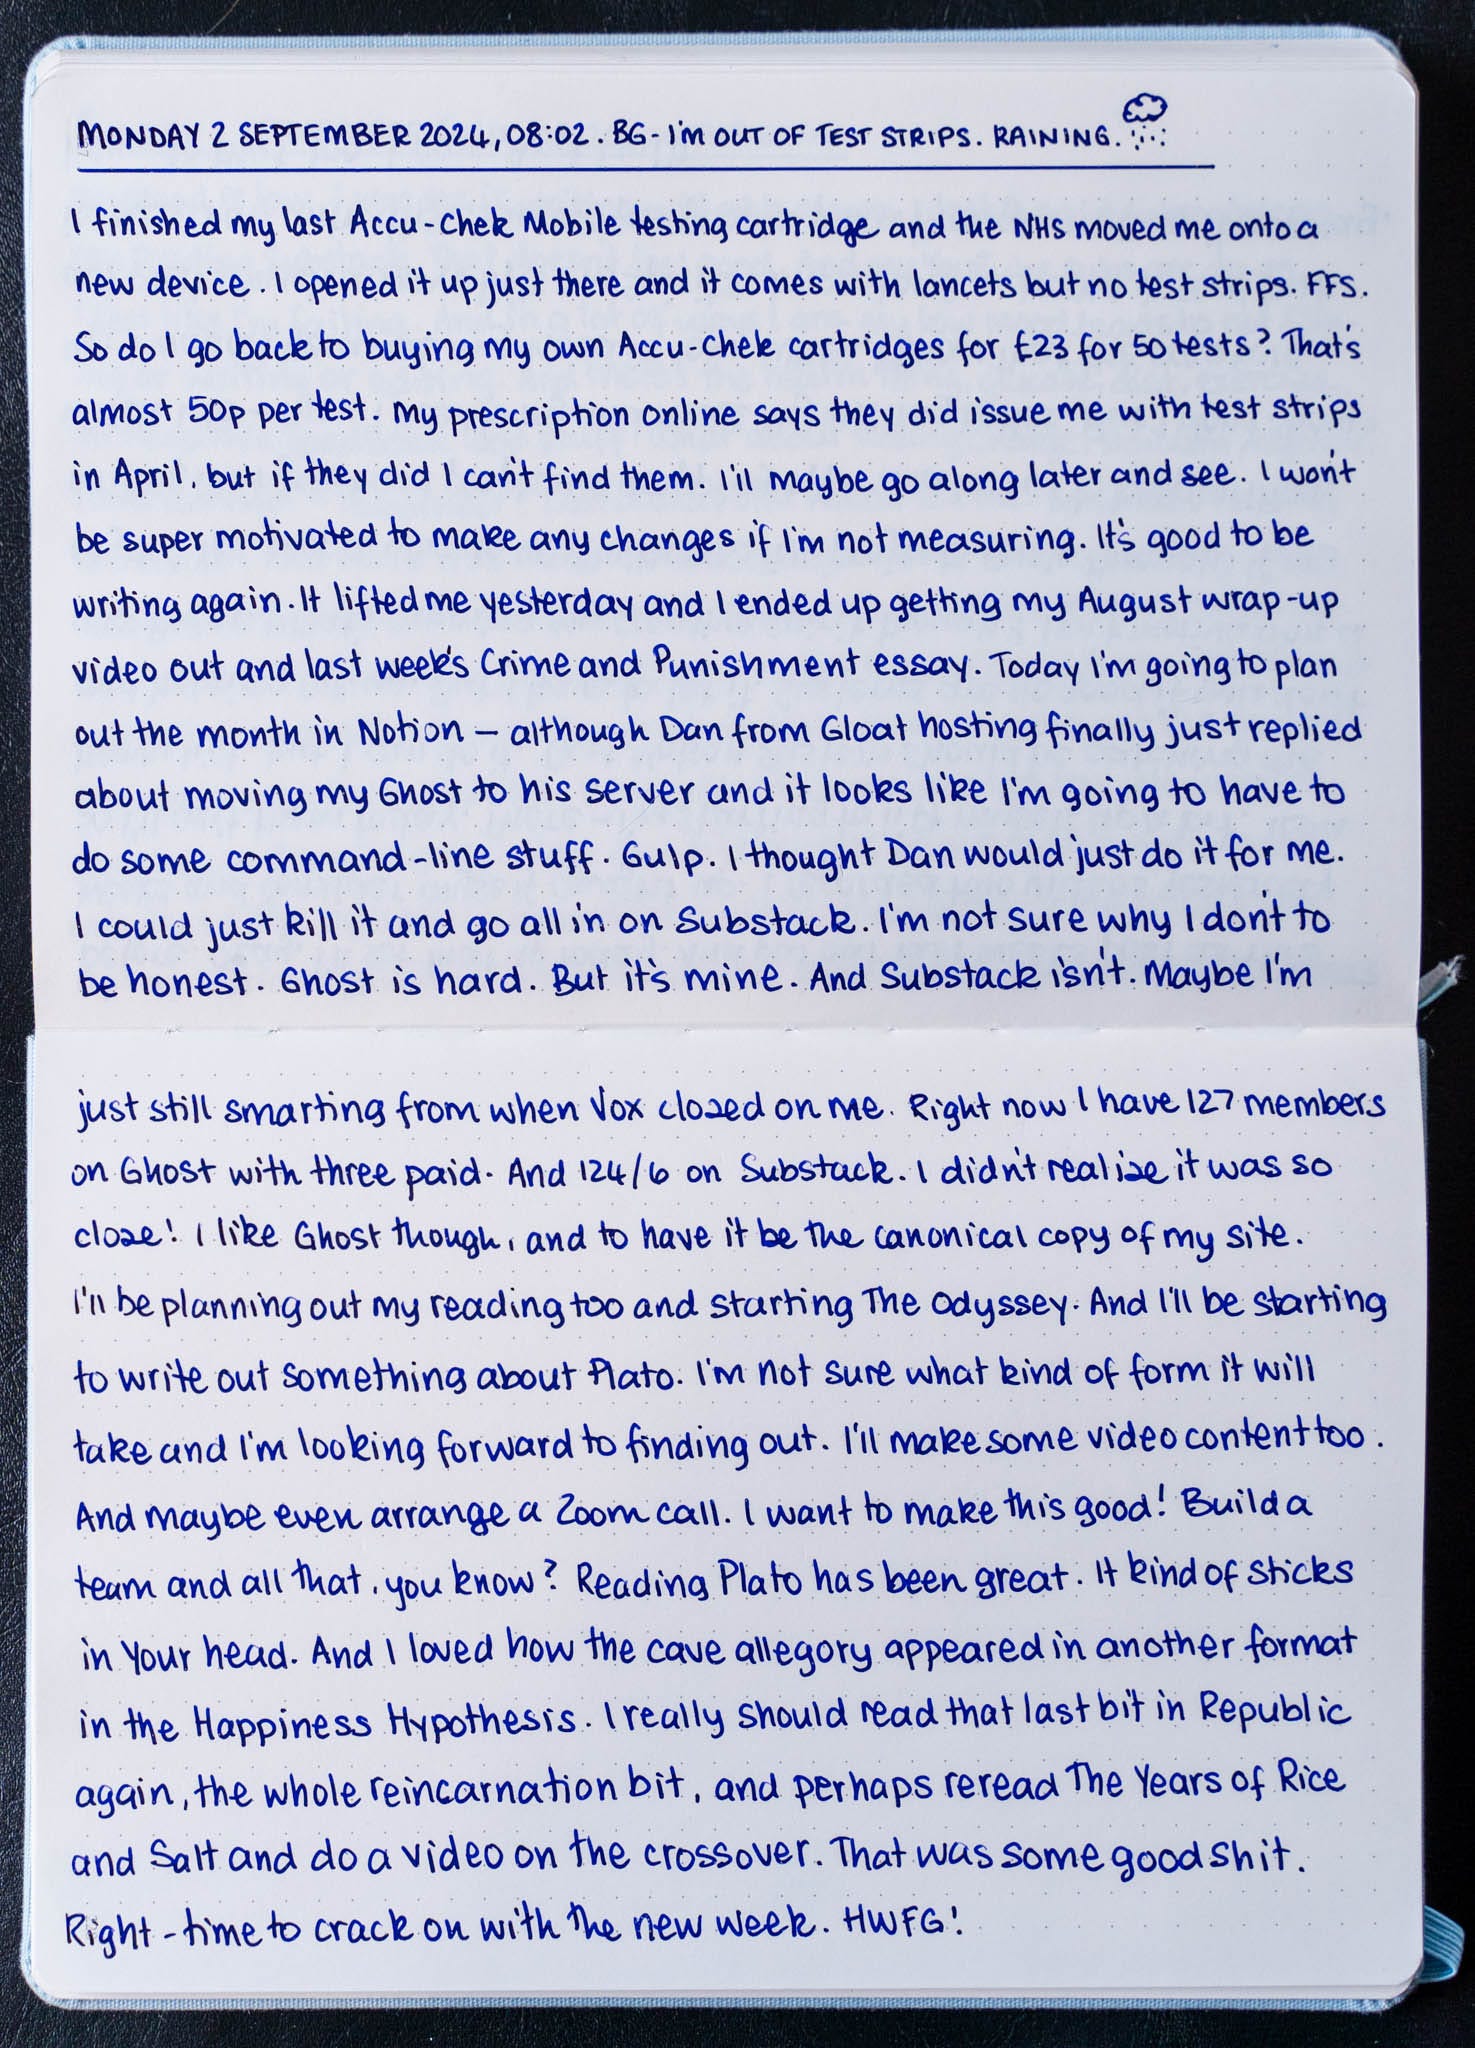 MONDAY 2 SEPTEMBER 2024, 08:02. BG - I'M OUT OF TEST STRIPS. RAINING.
I finished my last Accu-Chek Mobile testing cartridge and the NHS moved me onto a
new device. I opened it up just there and it comes with lancets but no test strips. FFS.
So do I go back to buying my own Accu-Chek cartridges for £23 for 50 tests? That's
almost 50p per test. My prescription online says they did issue me with test strips
in April, but if they did I can't find them. I'll maybe go along later and see. I won't
be super motivated to make any changes if I'm not measuring. It's good to be
writing again. It lifted me yesterday and I ended up getting my August wrap-up
video out and last week's Crime and Punishment essay. Today I'm going to plan
out the month in Notion – although Dan from Gloat hosting finally just replied
about moving my Ghost to his server and it looks like I'm going to have to
do some command-line stuff. Gulp. I thought Dan would just do it for me.
I could just kill it and go all in on Substack. I'm not sure why I don't to
be honest. Ghost is hard. But it's mine. And Substack isn't. Maybe I'm
just still smarting from when Vox closed on me. Right now I have 127 members
on Ghost with three paid. And 124/6 on Substack. I didn't realise it was so
close! I like Ghost though, and to have it be the canonical copy of my site.
I'll be planning out my reading too and starting The Odyssey. And I'll be starting
to write out something about Plato. I'm not sure what kind of form it will
take and I'm looking forward to finding out. I'll make some video content too.
And maybe even arrange a Zoom call. I want to make this good! Build a
team and all that, you know? Reading Plato has been great. It kind of sticks
in your head. And I loved how the cave allegory appeared in another format
in the Happiness Hypothesis. I really should read that last bit in Republic
again, the whole reincarnation bit, and perhaps reread The Years of Rice
and Salt and do a video on the crossover. That was some good shit.
Right - time to crack on with the new week. HWFG!